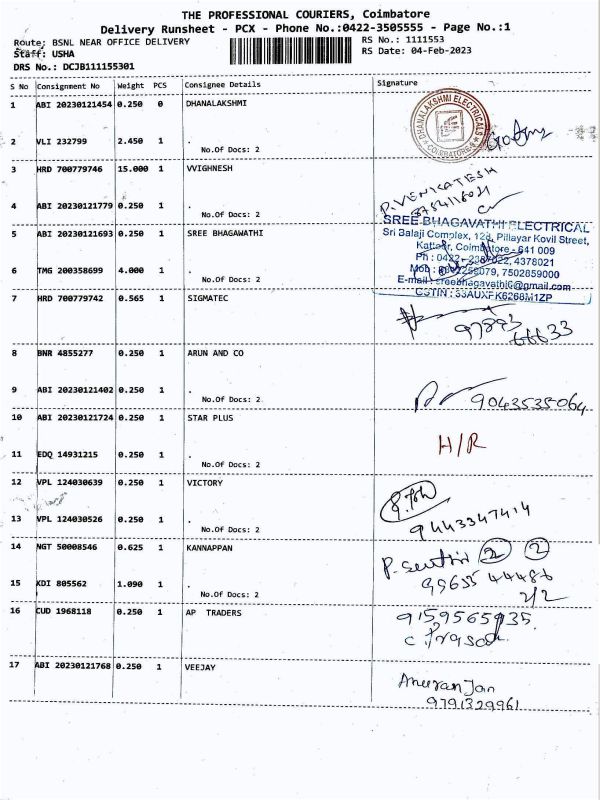 THE PROFESSIONAL COURIERS, Coimbatore
Delivery Runsheet - PCX - Phone No.:0422-3505555 - Page No.:1
Route: BSNL NEAR OFFICE DELIVERY RS No.: 1111553
Staff: USHA RS Date: 04-Feb-2023
DRS No.: DCJB111155301
S No Consignment No Weight PCS Consignee Details Signature
1 ABI 20230121454 0.250 0 DHANALAKSHMI
DHANALAKSHMI ELECTRICALS
COIMBATORE
2 VLI 232799 2.450 1 .
No.Of Docs: 2
3 HRD 700779746 15.000 1 VVIGHNESH
P.VENKATESH
4 ABI 20230121779 0.250 1 .
No.Of Docs: 2
SREE BHAGAVATHI ELECTRICAL
5 ABI 20230121693 0.250 1 SREE BHAGAWATHI
Sri Balaji Complex, 128, Pillayar Kovil Street,
Kattoor, Coimbatore - 641 009
6 TMG 200358699 4.000 1 .
No.Of Docs: 2
4378021
7502859000
E-mail : sreebhagavathi6@gmail.com
GSTIN : 33AUXFK6268M1ZP
7 HRD 700779742 0.565 1 SIGMATEC
97893
66633
8 BNR 4855277 0.250 1 ARUN AND CO
9 ABI 20230121402 0.250 1 .
No.Of Docs: 2
9043535064
10 ABI 20230121724 0.250 1 STAR PLUS
H/R
11 EDQ 14931215 0.250 1 .
No.Of Docs: 2
12 VPL 124030639 0.250 1 VICTORY
13 VPL 124030526 0.250 1 .
No.Of Docs: 2
9443347414
14 NGT 50008546 0.625 1 KANNAPPAN
P. Senthil 2 2
15 KDI 805562 1.090 1 .
No.Of Docs: 2
99655 44486
2/2
16 CUD 1968118 0.250 1 AP TRADERS
9159565935.
C. Prasad.
17 ABI 20230121768 0.250 1 VEEJAY
Anuran Jan
9791329961